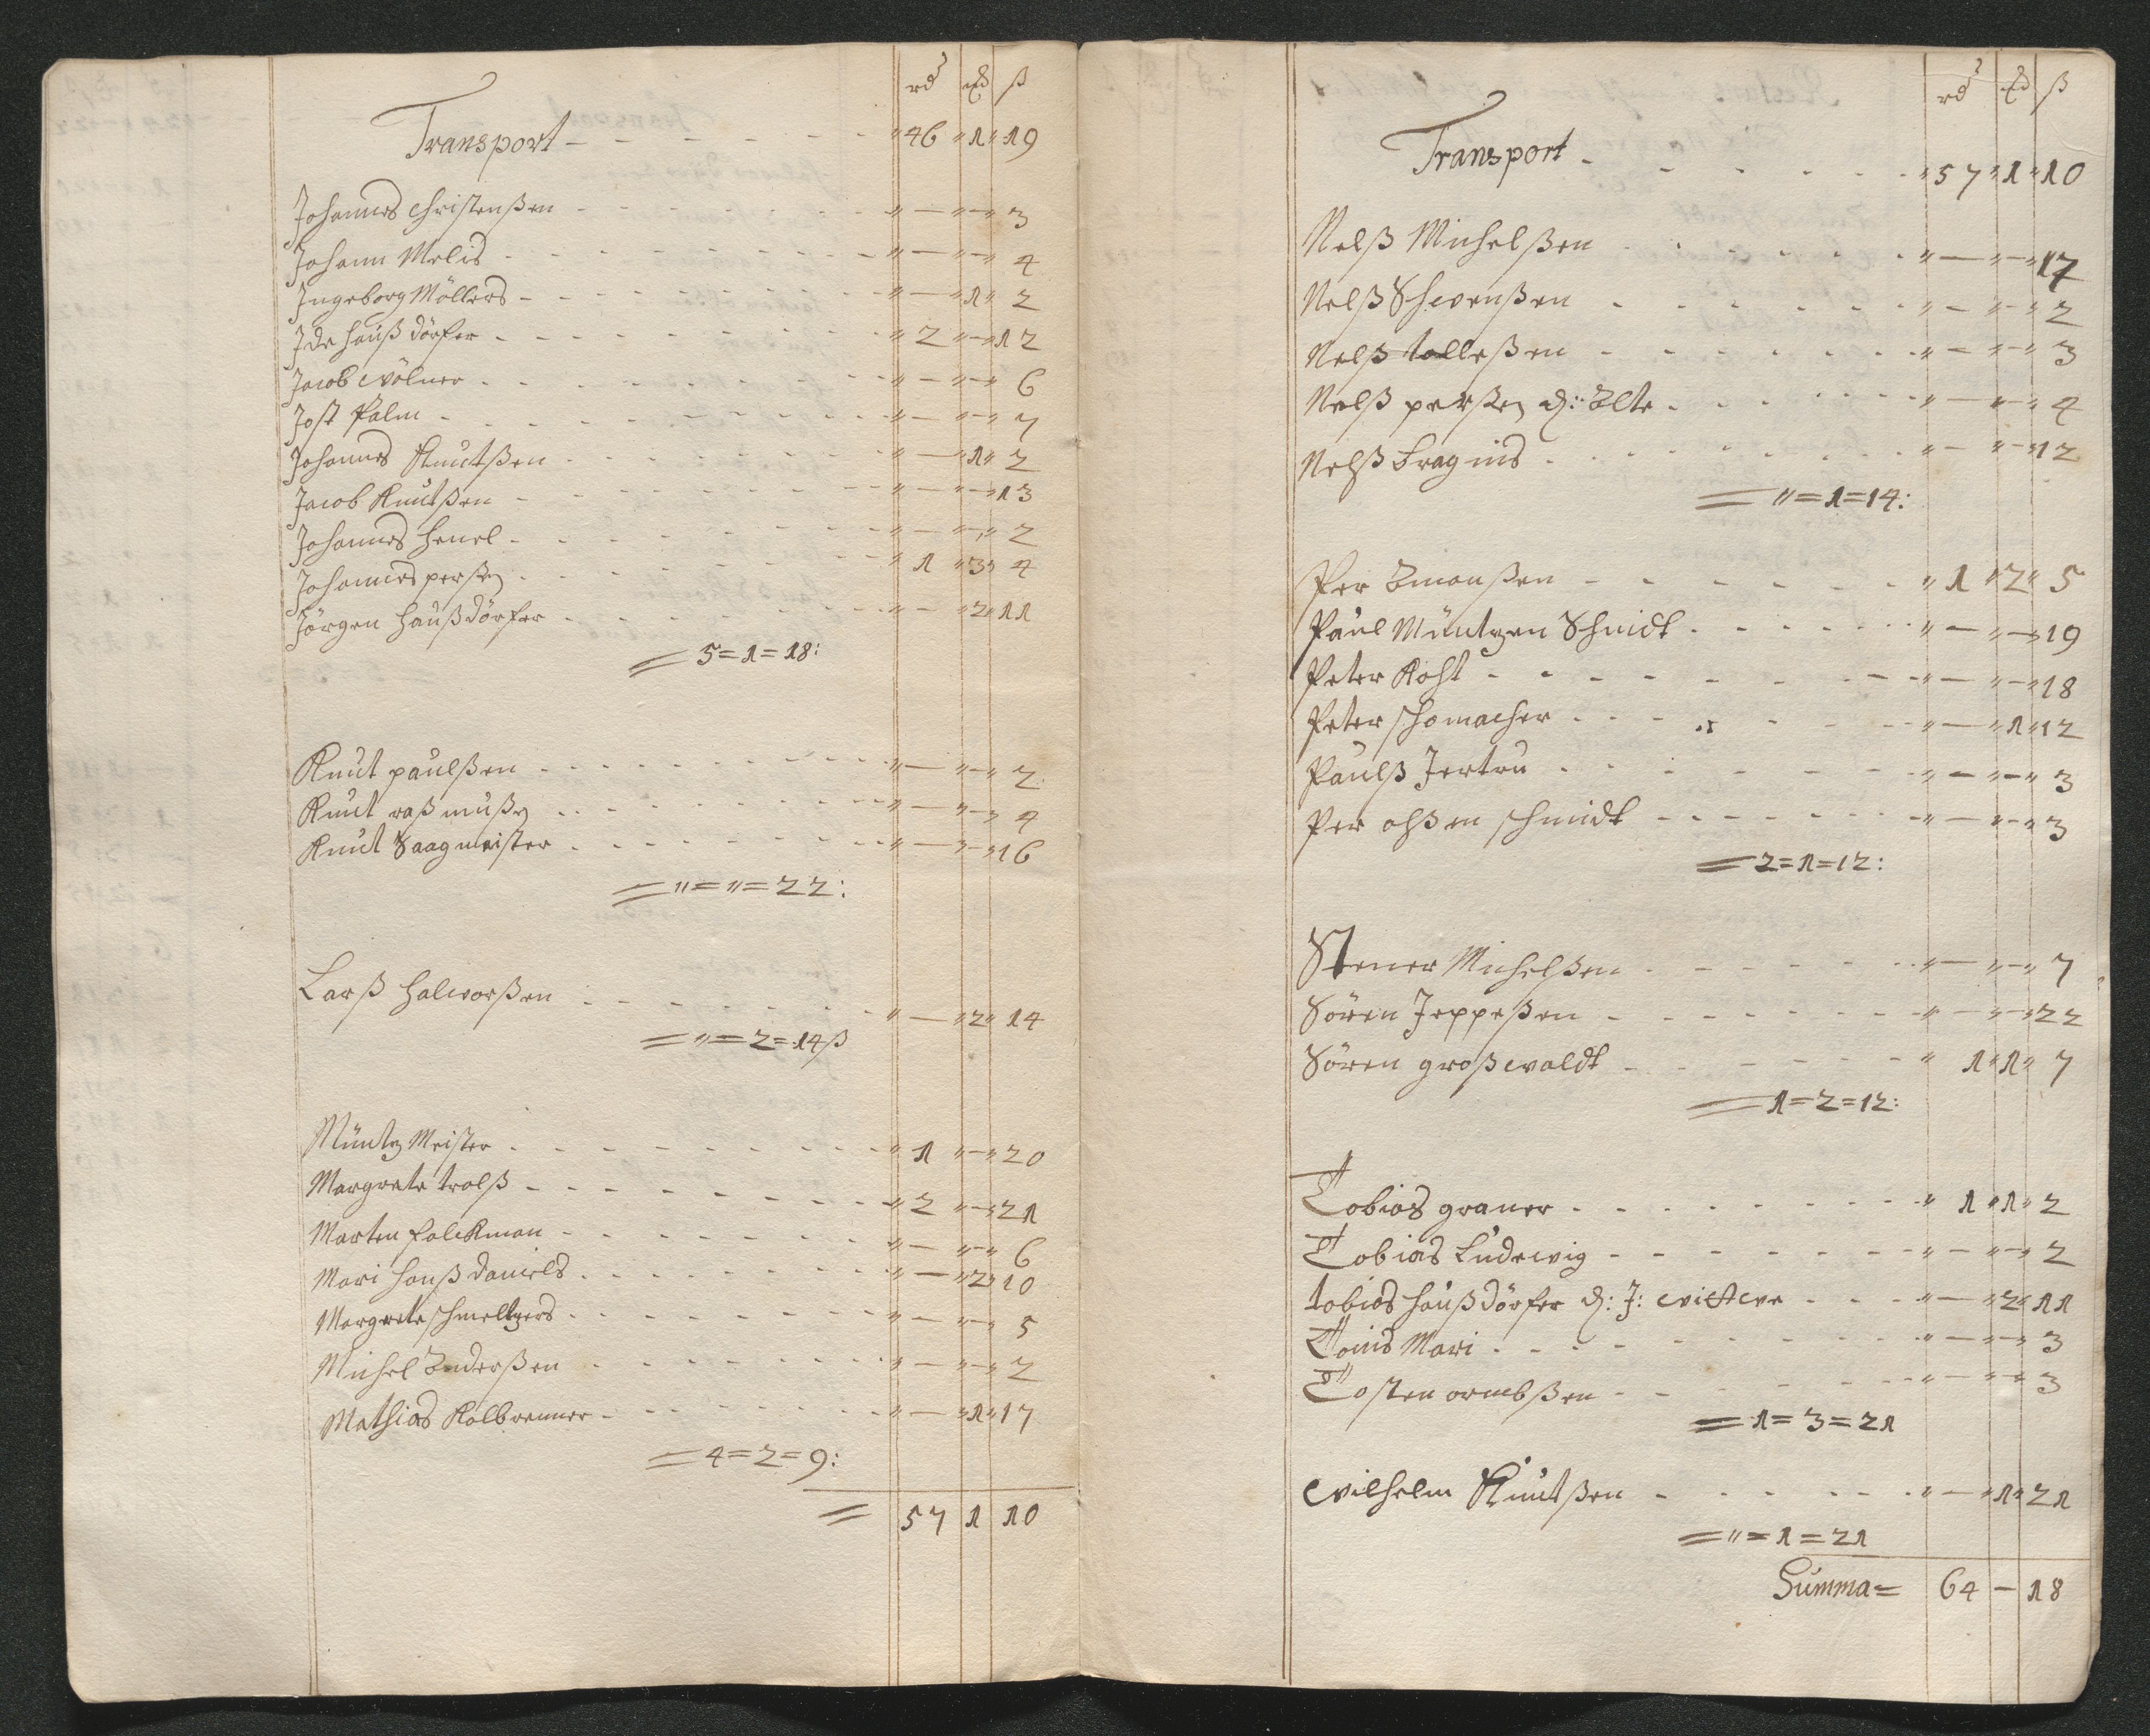 rd ß
Transport - - - - - " 46 " 1 " 19
Johannes Christenßen - - - " — " — " 3
Johann Melis - - - " — " — " 4
Ingeborg Möllers - - - " — " 1 " 2
Ide Haußdörfer - - - " 2 " — " 12
Jacob Cölner - - - " — " — " 6
Jost Palm - - - " — " — " 7
Johannes Knutßen - - - " — " 1 " 2
Jacob Knutßen - - - " — " — " 13
Johannes Henel - - - " — " — " 2
Johannes perßen - - - " 1 " 3 " 4
Jörgen Haußdörfer - - - " — " 2 " 11
= 5 = 1 = 18:
Knut paulßen - - - " — " — " 2
Knut raßmußen - - - " — " — " 4
Knut Saagmeister - - - " — " — " 16
= " = " = 22:
Larß Halworßen - - - " — " 2 " 14
= " = 2 = 14 ß
Müntz Meister - - - " 1 " — " 20
Margrete trolß - - - " 2 " — " 21
Marten falckman - - - " — " — " 6
Mari Hanß Daniels - - - " — " 2 " 10
Margrete schmeltzers - - - " — " — " 5
Michel Anderßen - - - " — " — " 2
Mathias Kolbrenner - - - " — " 1 " 17
= 4 = 2 = 9:
= 57 1 10
rd ß
Transport - - - " 57 " 1 " 10
Nelß Michelßen - - - " — " — " 17
Nelß Schwenßen - - - " — " — " 2
Nelß tolleßen - - - " — " — " 3
Nelß perßen d: älte - - - " — " — " 4
Nelß - - - " — " — " 12
= " = 1 = 14:
Per Amonßen - - - " 1 " 2 " 5
Paul Müntzen Schmidt - - - " — " — " 19
Peter Koht - - - " — " — " 18
Peter schomacher - - - " — " 1 " 12
Paulß Jertru - - - " — " — " 3
Per olßen schmidt - - - " — " — " 3
= 2 = 1 = 12:
Stener Michelßen - - - " — " — " 7
Sören Jeppeßen - - - " — " — " 22
Sören großwaldt - - - " 1 " 1 " 7
= 1 = 2 = 12:
Tobias graner - - - " 1 " 1 " 2
Tobias Ludewig - - - " — " — " 2
tobias Haußdörfer d: J: wittwe - - - " — " 2 " 11
Mari - - - " — " — " 3
Tosten ormbßen - - - " — " — " 3
= 1 = 3 = 21
Wilhelm Knutßen - - - " — " 1 " 21
= " = 1 = 21
Summa = 64 — 18